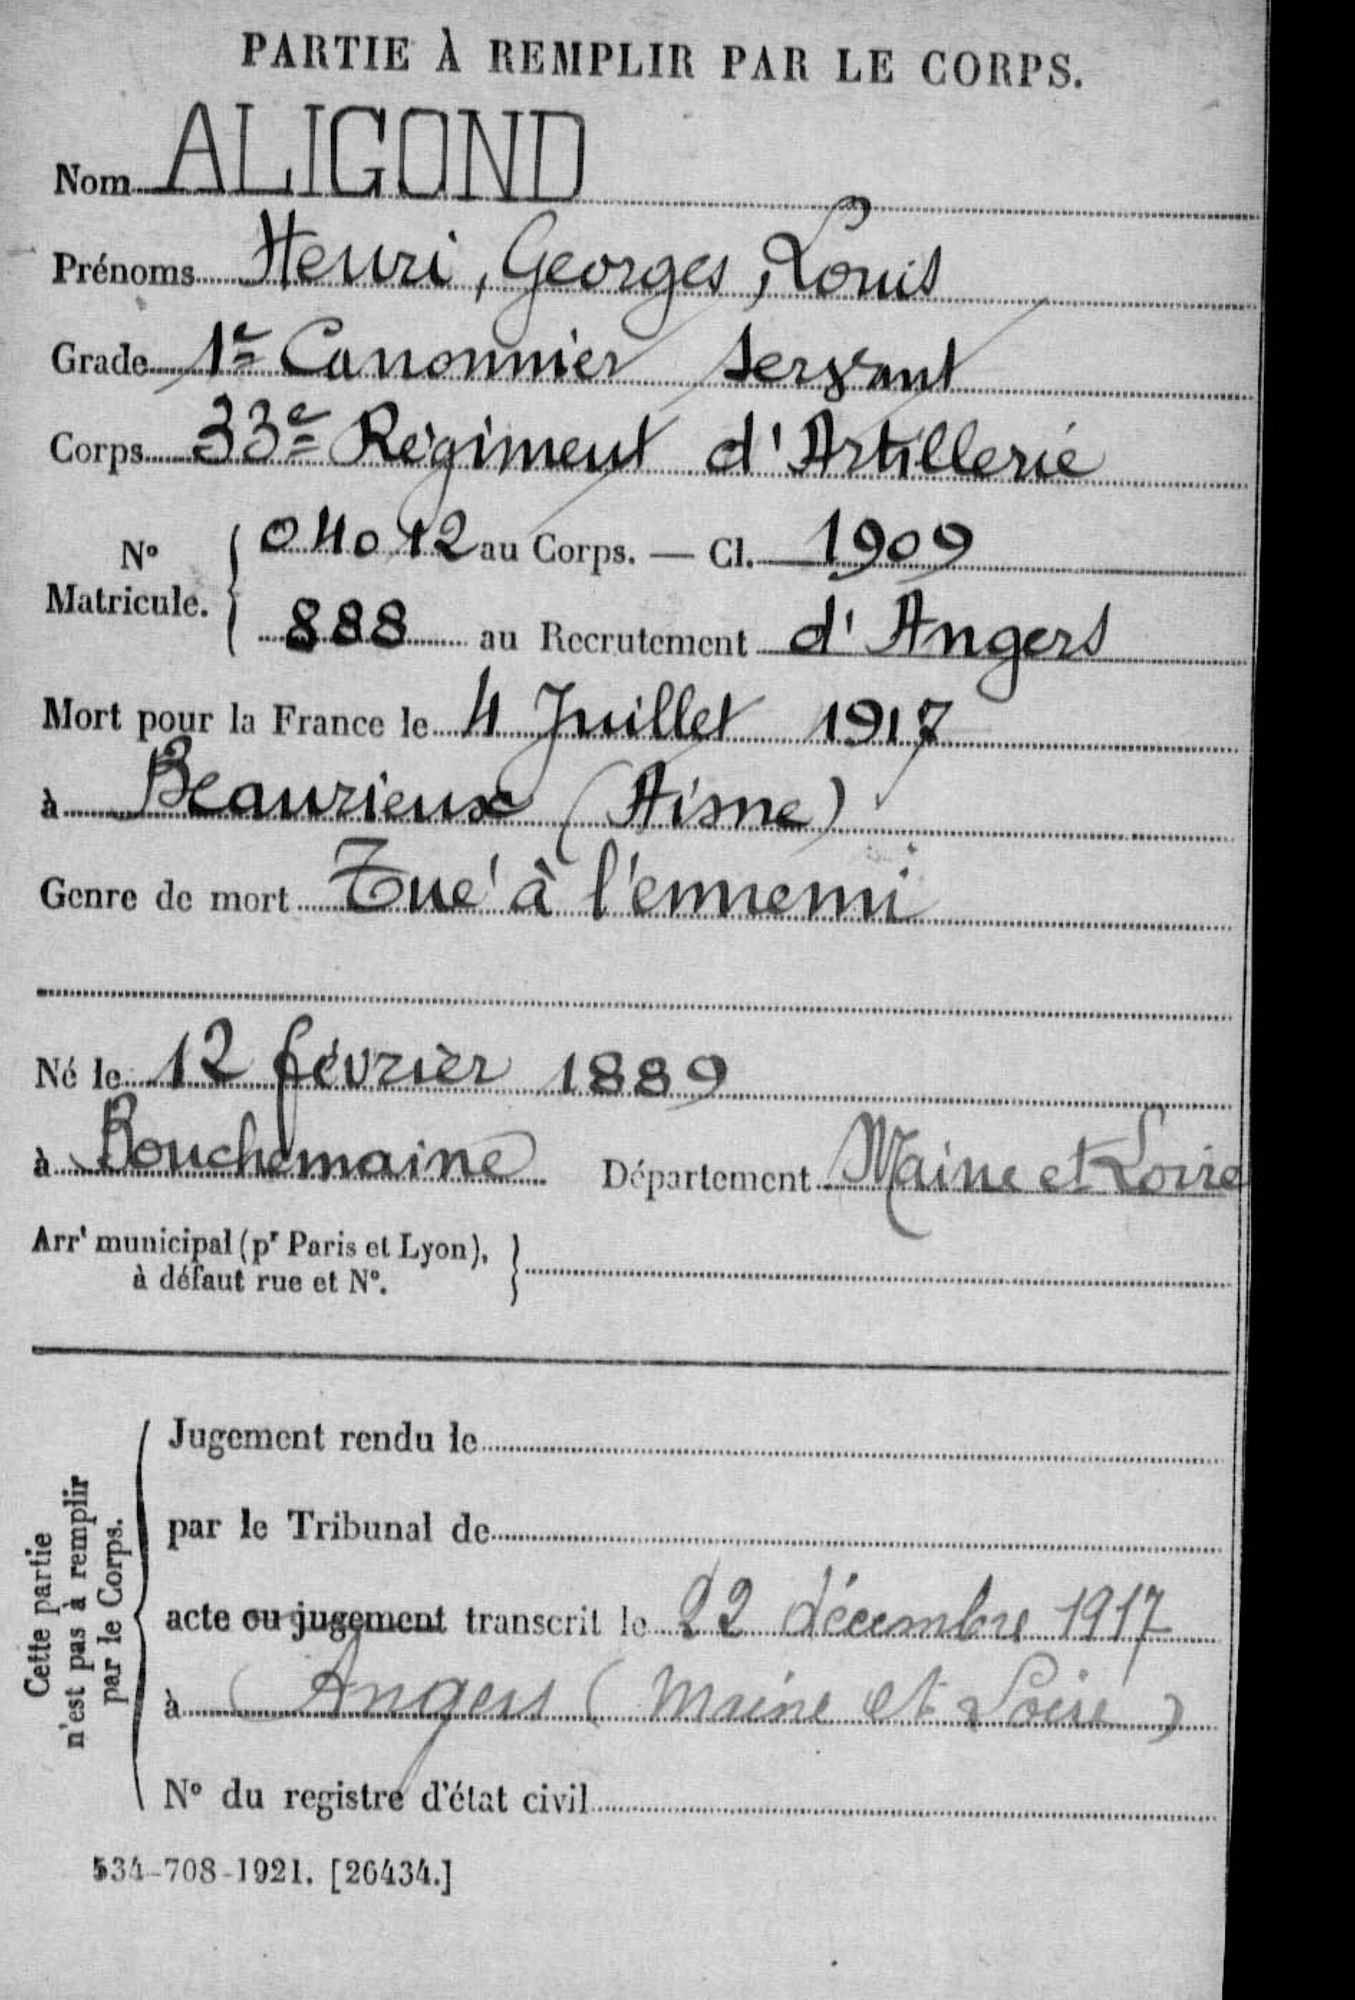 PARTIE À REMPLIR PAR LE CORPS.
Nom ALIGOND
Prénoms Henri, Georges, Louis
Grade 1er Canonnier servant
Corps 33e Régiment d'Artillerie
N° Matricule. { 04012 au Corps. — Cl. 1909
888 au Recrutement d'Angers
Mort pour la France le 4 Juillet 1917
à Beaurieux (Aisne)
Genre de mort Tué à l'ennemi
Né le 12 février 1889
à Bouchemaine Département Maine et Loire
Arrt municipal (pr Paris et Lyon), }
à défaut rue et N°.
Cette partie
n'est pas à remplir
par le Corps.
Jugement rendu le
par le Tribunal de
acte ou jugement transcrit le 22 décembre 1917
à Angers (Maine et Loire)
N° du registre d'état civil
534-708-1921. [26434.]